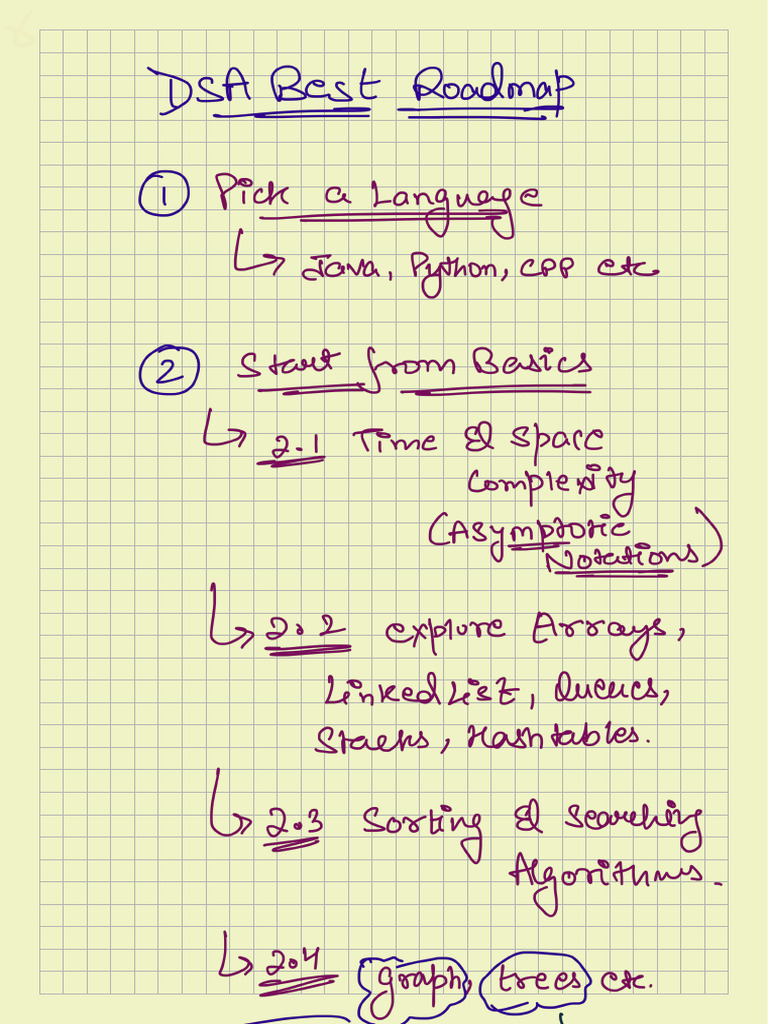 DSA Best Roadmap
1 Pick a Language
Java, Python, CPP etc.
2 Start from Basics
2.1 Time & Space
Complexity
(Asymptotic
Notations)
2.2 explore Arrays,
Linked List, Queues,
Stacks, Hash tables.
2.3 Sorting & Searching
Algorithms.
2.4 graph, trees etc.